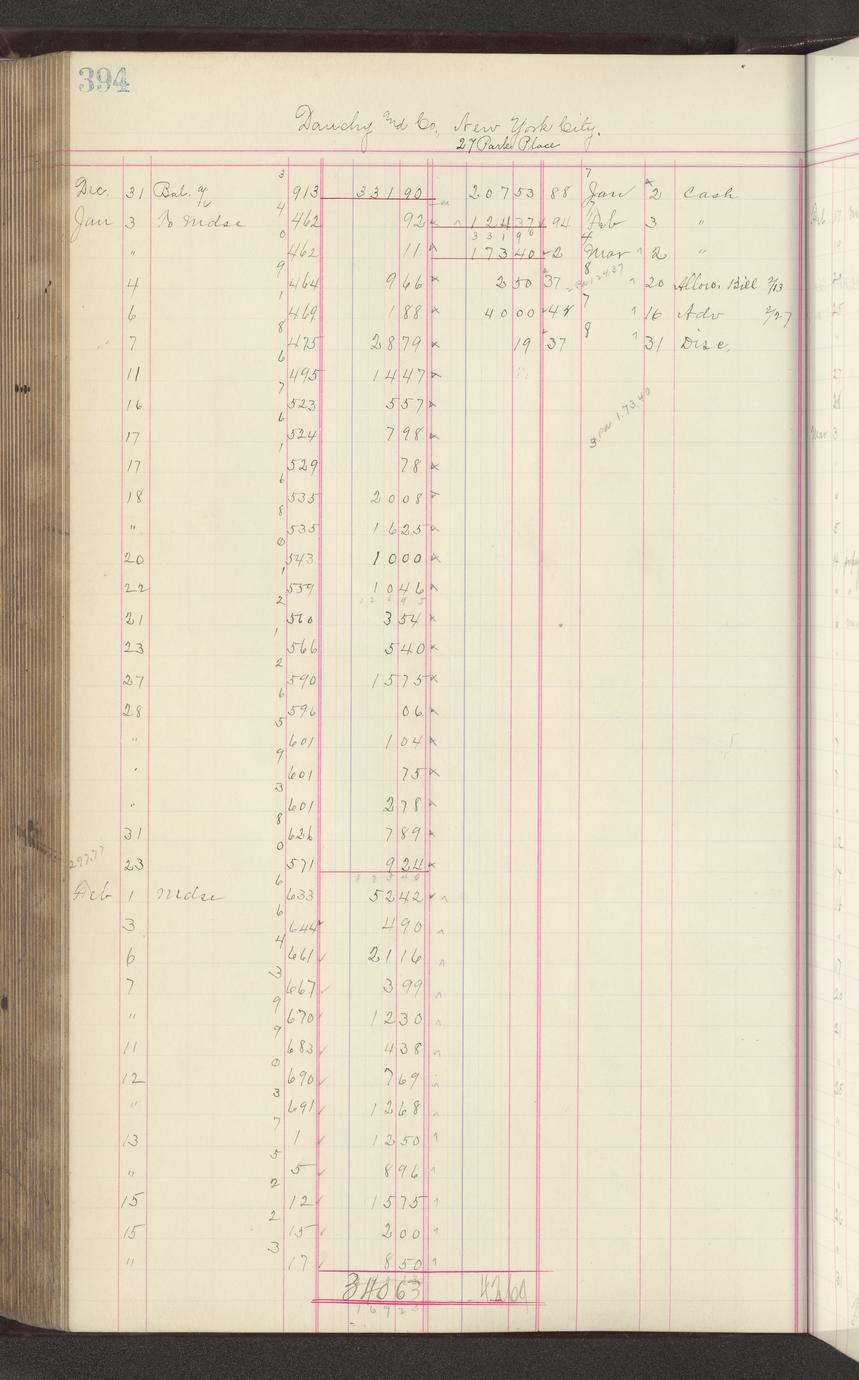 394
Dauchy and Co, New York City.
27 Park Place
Dec. 31 Bal. 3 913 331 90 207 53 88 7 Jan 2 Cash
Jan 3 To Mdse 4 462 92 124 37 94 7 Feb 3 "
331 90
" 0 462 11 173 40 2 4 Mar 2 "
4 9 464 9 66 2 50 37 8 20 Allow. Bill 2/13
6 1 469 1 88 40 00 44 7 16 Adv 2/27
7 8 475 28 79 19 37 8 31 Disc.
11 6 495 14 47
16 7 523 5 57
17 6 524 7 98
17 1 529 78
18 6 535 20 08
" 8 535 16 25
20 0 543 10 00
22 1 559 10 46
21 2 560 3 54
23 1 566 5 40
27 2 590 15 75
28 6 596 06
" 5 601 1 04
" 9 601 75
" 3 601 2 78
31 8 626 7 89
23 0 571 9 24
Feb 1 Mdse 6 633 52 42
3 6 644 4 90
6 4 661 21 16
7 3 667 3 99
" 9 670 12 30
11 9 683 4 38
12 0 690 7 69
" 3 691 12 68
13 7 1 12 50
" 5 5 8 96
15 2 12 15 75
15 2 15 2 00
" 3 17 8 50
340 63